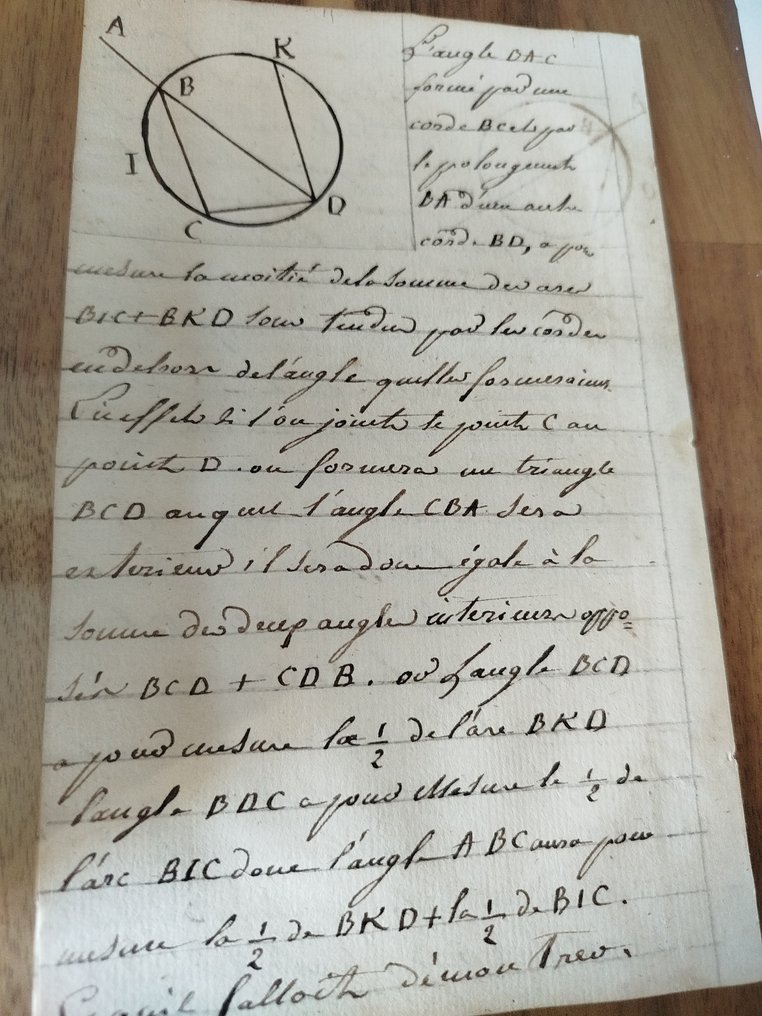 A
K
B
I
D
C
L'angle BAC
formé par une
corde BC et par
le prolongement
BA d'une autre
corde BD, a pour
mesure la moitié de la somme des arcs
BIC + BKD sous tendus par les cordes
en dehors de l'angle qu'elles formeraient
En effet si l'on joint le point C au
point D. on formera un triangle
BCD auquel l'angle CBA sera
exterieur il sera donc égale à la
somme des deux angles interieurs oppo=
sés BCD + CDB. or L'angle BCD
a pour mesure la 1/2 de l'arc BKD
l'angle BDC a pour Mesure le 1/2 de
l'arc BIC donc l'angle ABC aura pour
mesure la 1/2 de BKD + la 1/2 de BIC.
Ce qu'il falloit démontrer.